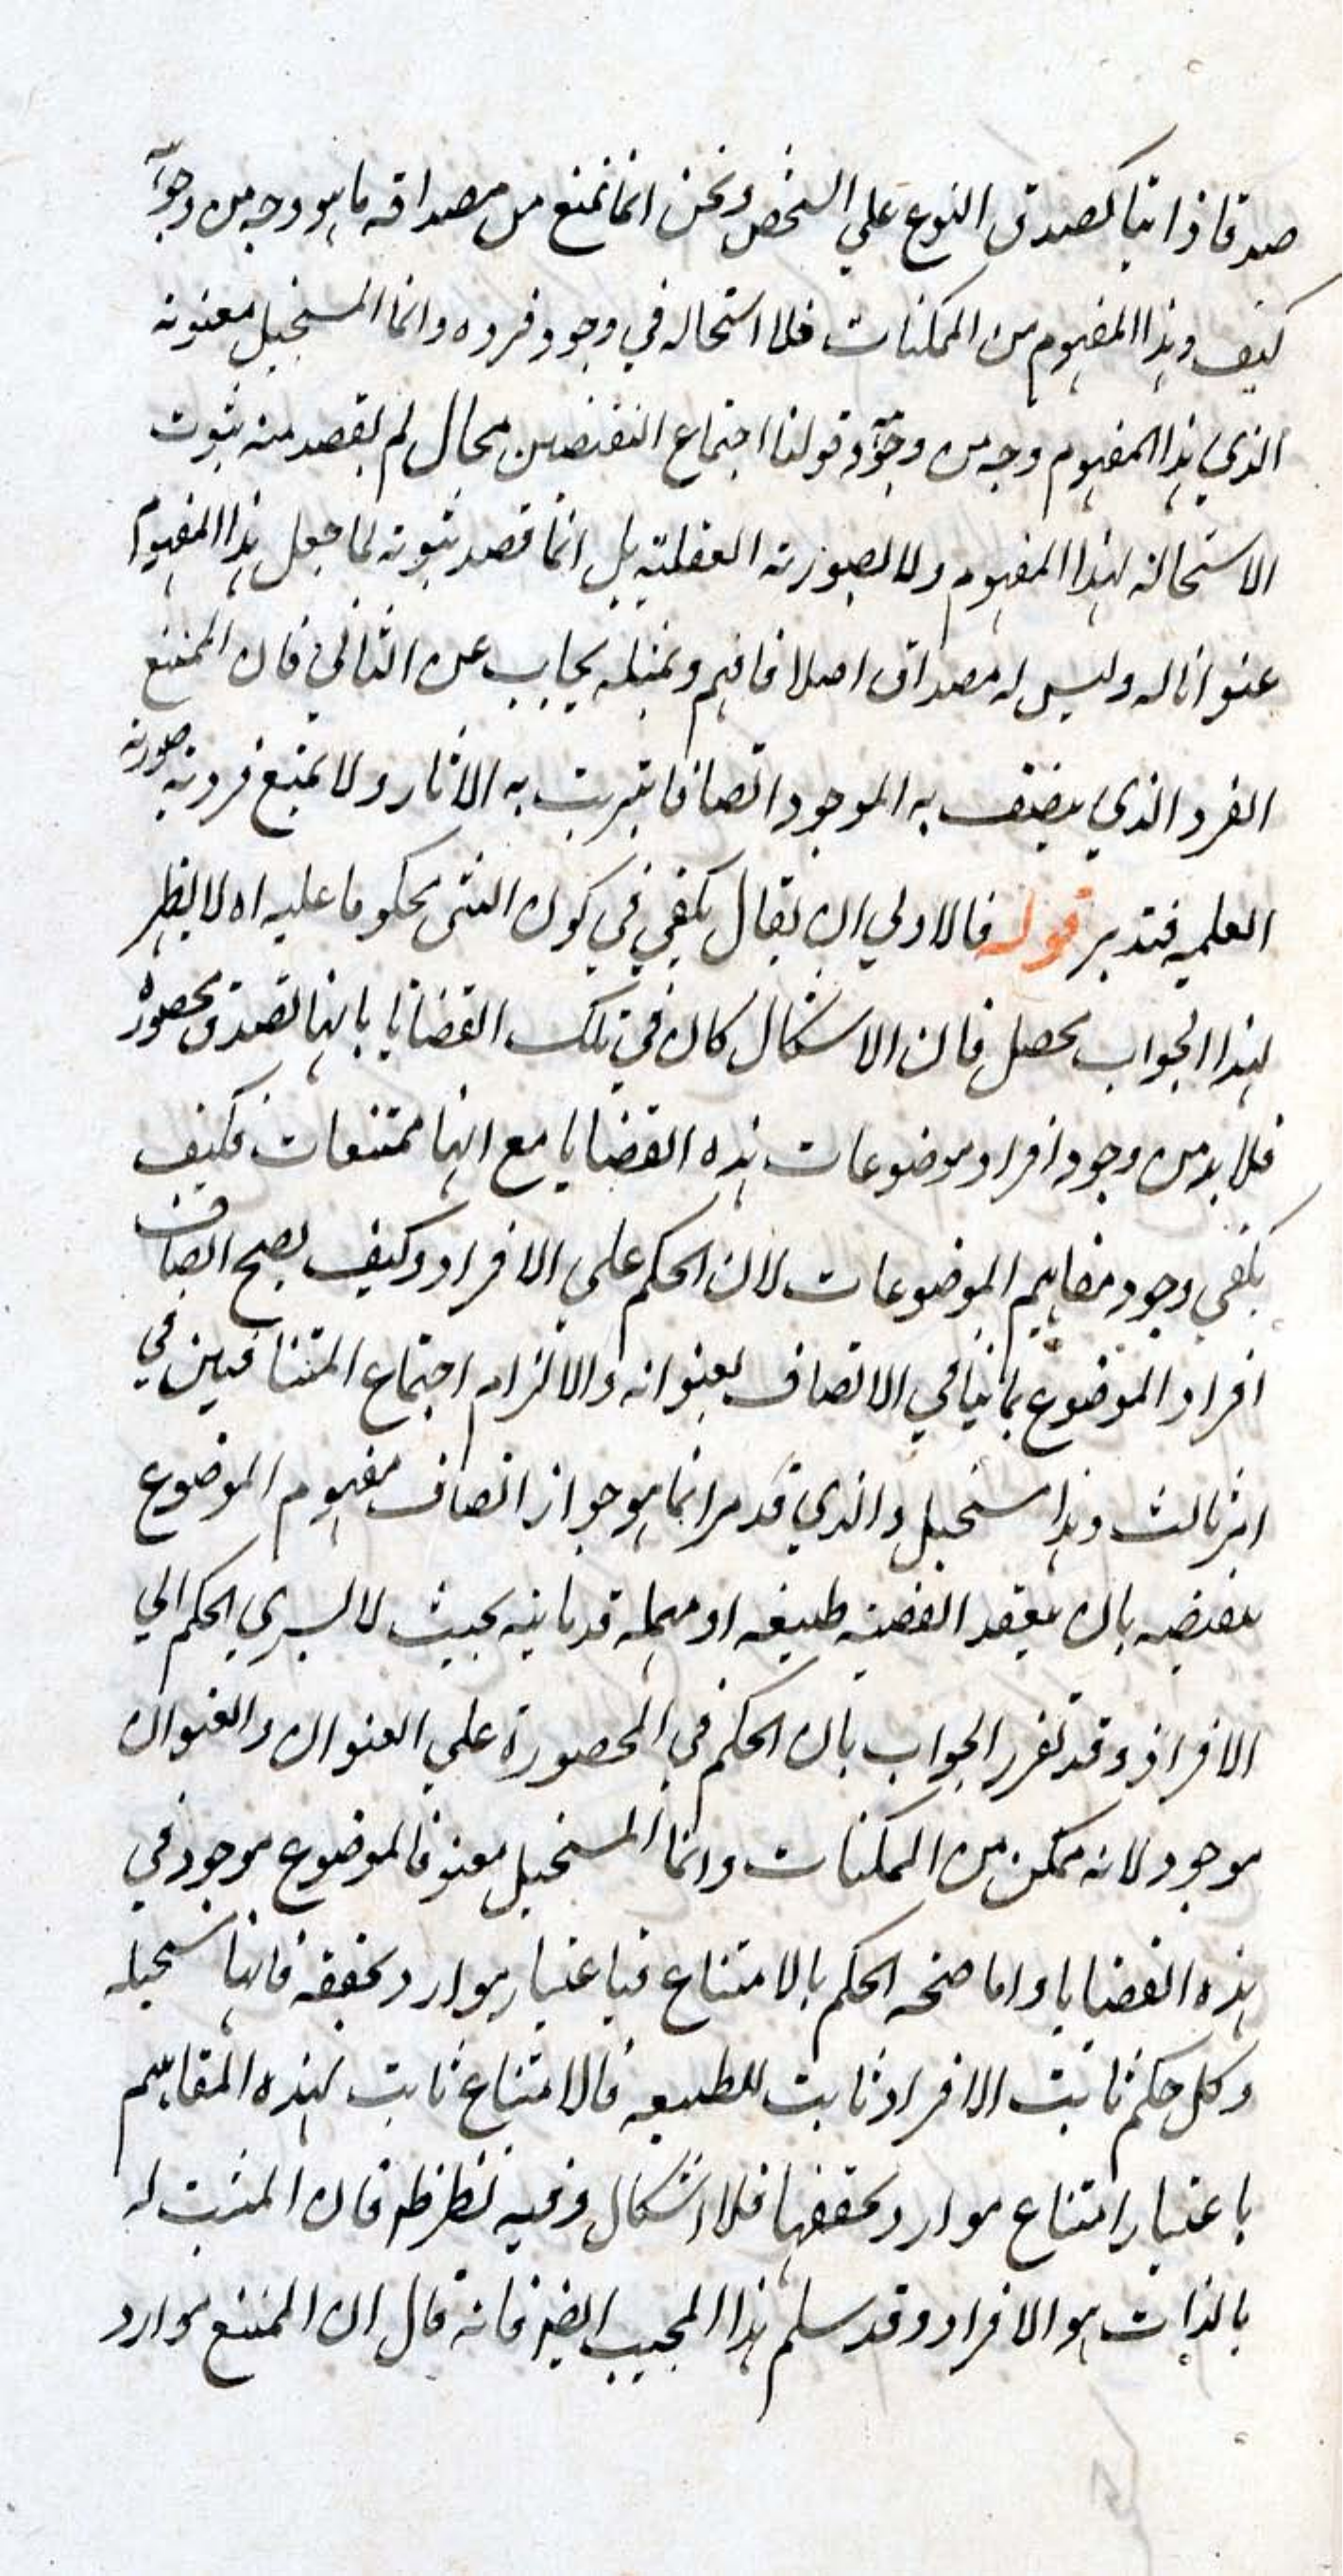 صدقا ذاتيا كصدق النوع علي الشخص ونحن انما نمنع من مصداقه ما هو وجه من وجوه
كيف وهذا المفهوم من الممكنات فلا استحاله في وجود فرده وانما المستحيل معنونه
الذي هذا المفهوم وجه من وجوه وقولنا اجتماع النقيضين محال لم يقصد منه ثبوت
الاستحالة لهذا المفهوم ولا لصورته العقلية بل انما قصد ثبوته لما جعل هذا المفهوم
عنوانا له وليس له مصداق اصلا فافهم وبمثله يجاب عن الثاني فان الممتنع
الفرد الذي يتصف به الموجود اتصافا يترتب به الاثار ولا يمتنع فردية صورته
العلميه فتدبر قوله فالاولي ان يقال يكفي في كون الشئ محكوما عليه اه لا يظهر
لهذا الجواب محصل فان الاشكال كان في تلك القضايا بانها تصدق محصورة
فلا بد من وجود افراد موضوعات هذه القضايا مع انها ممتنعات فكيف
يكفي وجود مفاهيم الموضوعات لان الحكم علي الافراد وكيف يصح اتصاف
افراد الموضوع بما ينافي الاتصاف بعنوانه والا لزم اجتماع المتنافيين في
امر ثالث وهذا مستحيل والذي قد مر انما هو جواز اتصاف مفهوم الموضوع
بنقيضه بان يعقد القضية طبيعه او مهمله قدمائيه بحيث لا يسري الحكم الي
الافراد وقد تقرر الجواب بان الحكم في المحصورة علي العنوان والعنوان
موجود لانه ممكن من الممكنات وانما المستحيل معنونه فالموضوع موجود في
هذه القضايا واما صحه الحكم بالامتناع فباعتبار موارد تحققه فانها مستحيله
وكل حكم ثابت الافراد ثابت للطبيعه فالامتناع ثابت لهذه المفاهيم
باعتبار امتناع موارد تحققها فلا اشكال وفيه نظر ظ فان المثبت له
بالذات هو الافراد وقد سلم هذا المجيب ايضا فانه قال ان الممتنع موارد